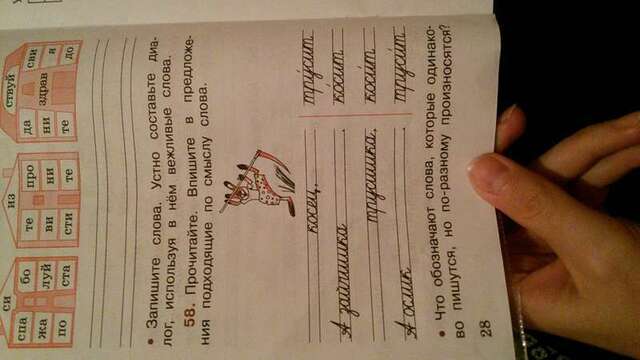 си
спа бо
жа луй
по ста
из
те про
ви ни
сти те
ствуй
да сви
ни здрав я
те до
• Запишите слова. Устно составьте диа-
лог, используя в нём вежливые слова.
58. Прочитайте. Впишите в предложе-
ния подходящие по смыслу слова.
косец, тру́сит
А зайчишка . ко́сит
трусишка, коси́т
А ослик . труси́т
• Что обозначают слова, которые одинако-
во пишутся, но по-разному произносятся?
28